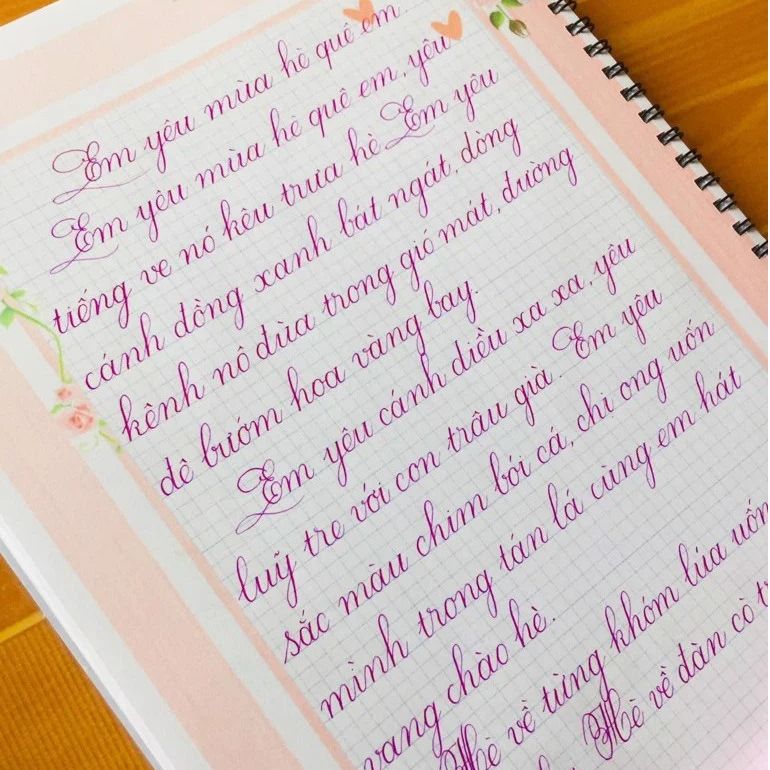 Em yêu mùa hè quê em
Em yêu mùa hè quê em, yêu
tiếng ve nó kêu trưa hè. Em yêu
cánh đồng xanh bát ngát, dòng
kênh nô đùa trong gió mát, đường
đê bướm hoa vàng bay.
Em yêu cánh diều xa xa, yêu
luỹ tre với con trâu già. Em yêu
sắc màu chim bói cá, chi ong uốn
mình trong tán lá cùng em hát
vang chào hè.
Hè về từng khóm lúa uốn
Hè về đàn cò